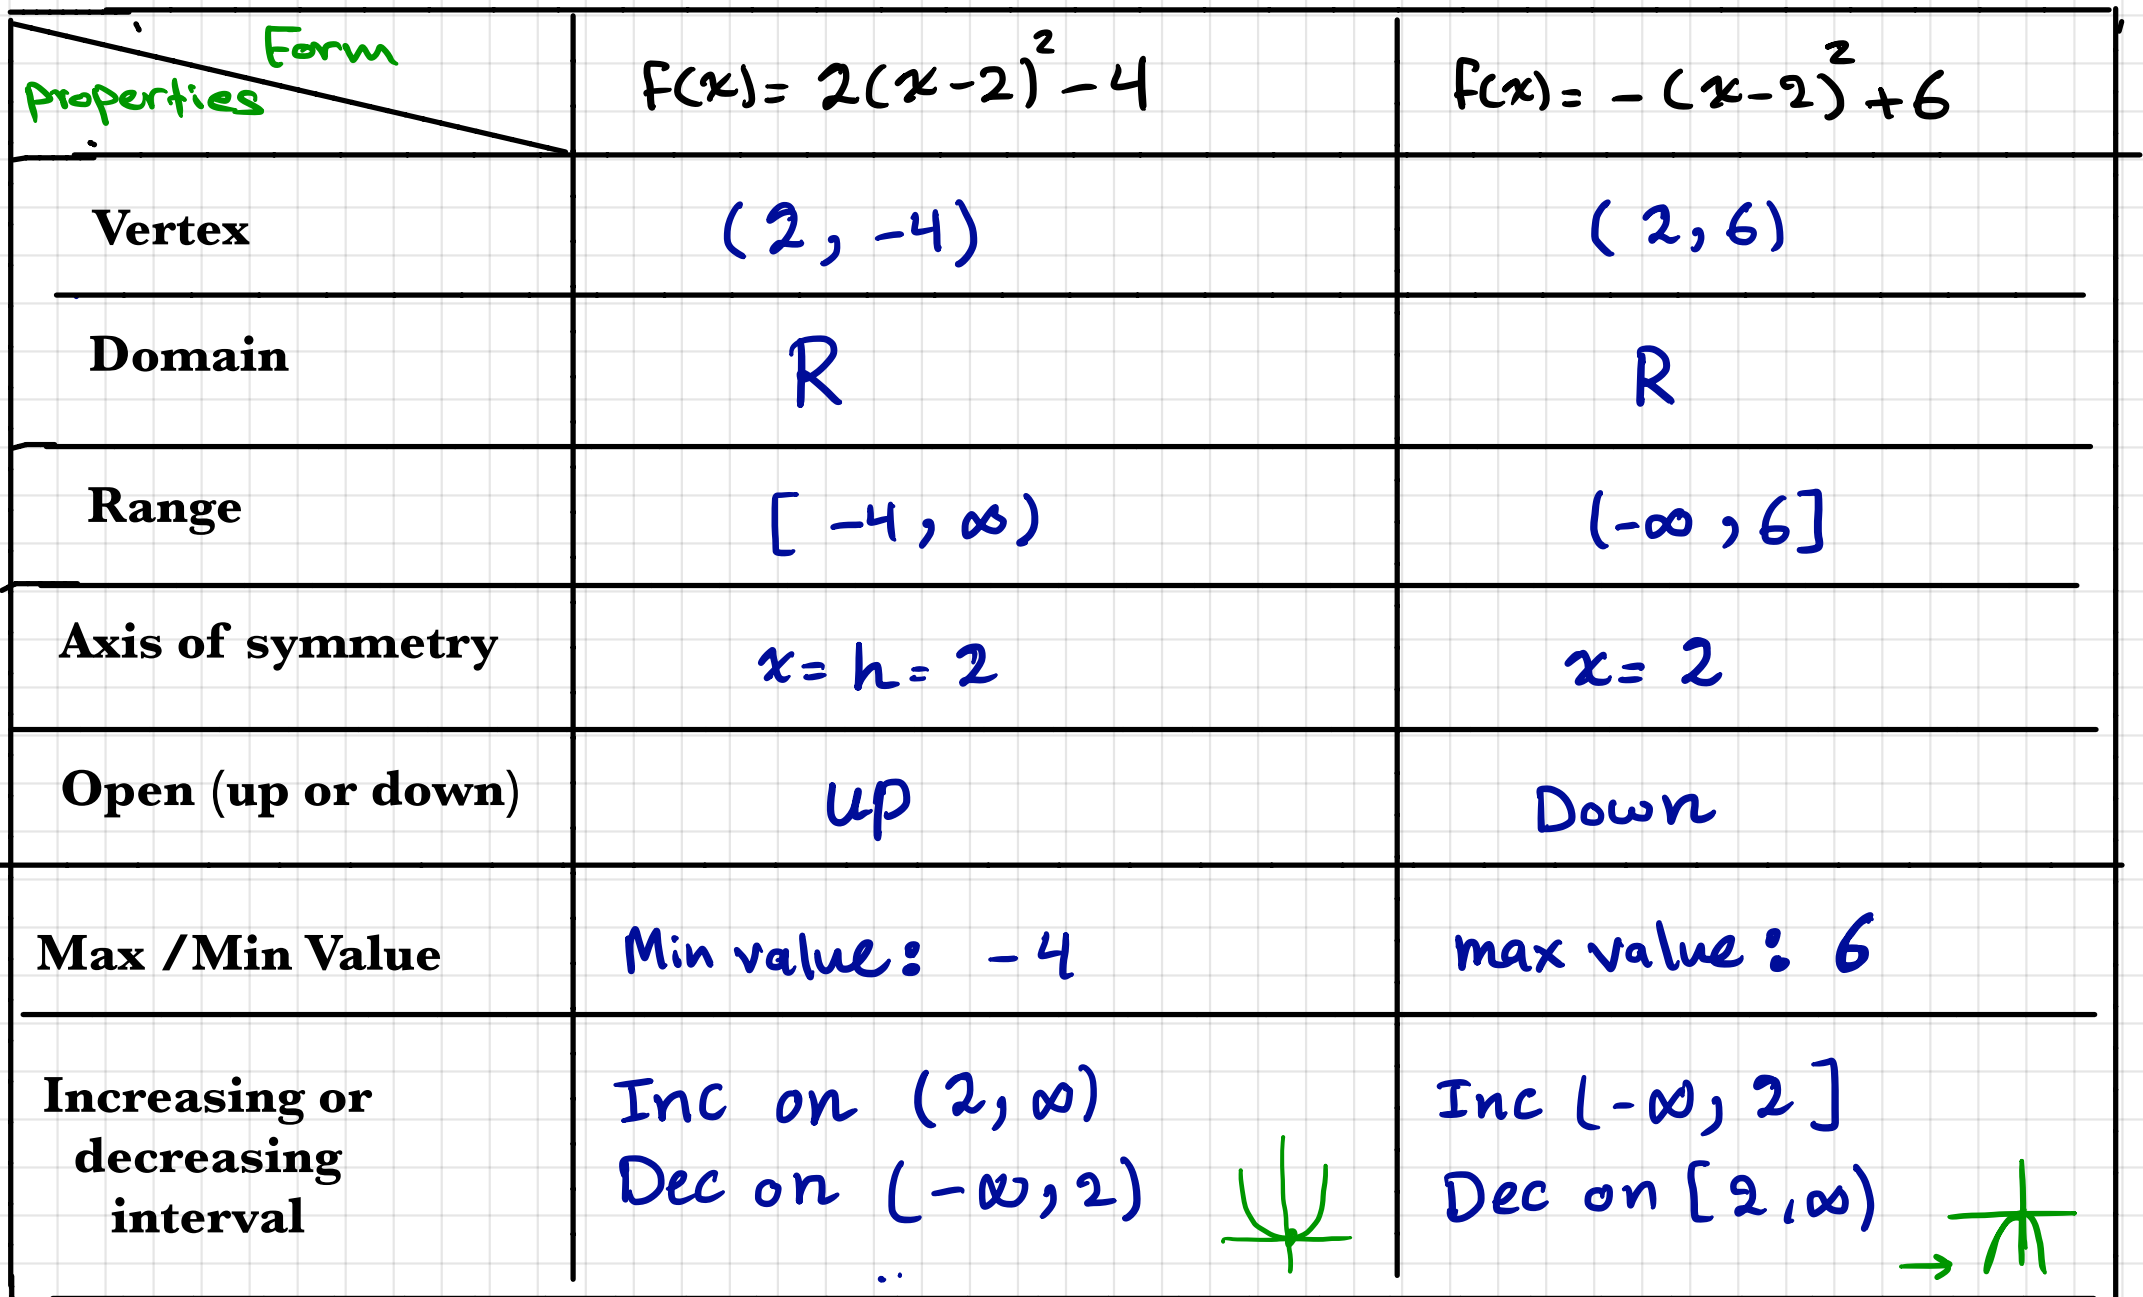 Form
properties
f(x) = 2(x-2)² - 4
f(x) = - (x-2)² + 6
Vertex
(2, -4)
(2, 6)
Domain
R
R
Range
[-4, ∞)
(-∞, 6]
Axis of symmetry
x = h = 2
x = 2
Open (up or down)
up
Down
Max /Min Value
Min value: -4
max value: 6
Increasing or
decreasing
interval
Inc on (2, ∞)
Dec on (-∞, 2)
Inc (-∞, 2]
Dec on [2, ∞)